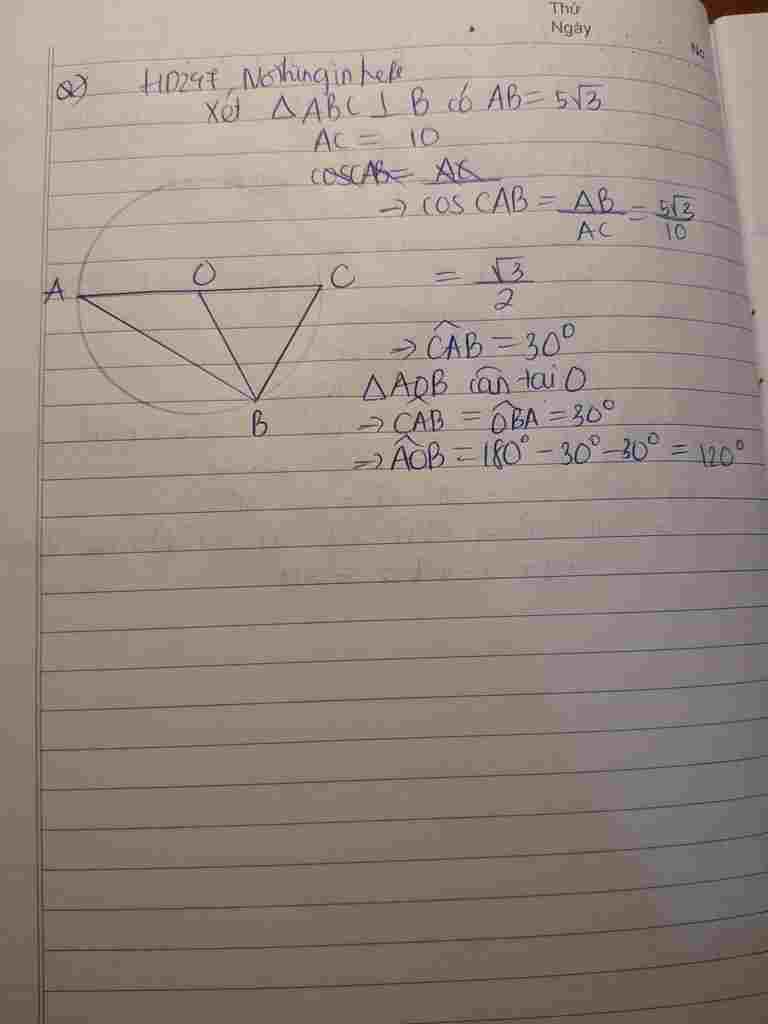 Thứ
Ngày
No
a) HD247 Nothinginhere
Xét ΔABC ⊥ B có AB = 5√3
AC = 10
cosCAB = AC
→ cos CAB = AB/AC = 5√3/10
= √3/2
A O C
B
→ \widehat{CAB} = 30°
ΔAOB cân tại O
→ \widehat{CAB} = \widehat{OBA} = 30°
→ \widehat{AOB} = 180° - 30° - 30° = 120°